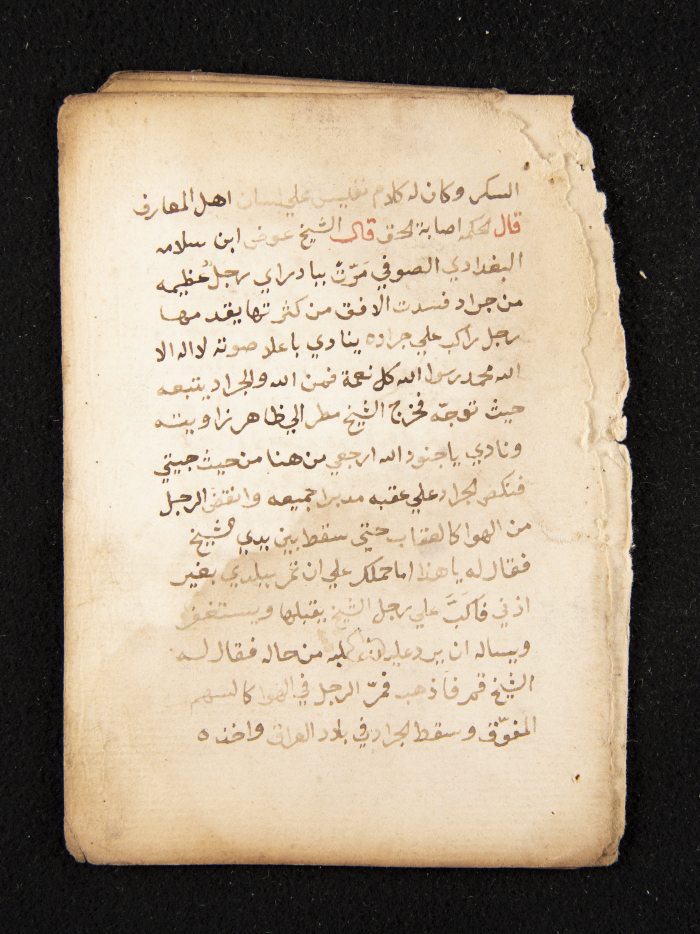 السكر وكان له كلام نفيس علي لسان اهل المعارف
قال الحكمه اصابة الحق قال الشيخ عوض ابن سلامه
البغدادي الصوفي مَرّتْ ببادراي رجل عظيمه
من جراد فسدت الافق من كثرتها يقدمها
رجل راكب علي جراده ينادي باعلا صوته لااله الا
الله محمد رسول الله كل نعمة فمن الله والجراد يتبعه
حيث توجّه فخرج الشيخ مطر الي ظاهر زاويته
ونادي ياجنود الله ارجعي من هنا من حيث جيتي
فنكص الجراد علي عقبه مدبرا جميعه وانقض الرجل
من الهوا كالعقاب حتي سقط بين يدي الشيخ
فقال له ياهذا اما حملك علي ان تمر ببلدي بغير
اذني فاكَبَّ علي رجل الشيخ يقبلها ويستغفر
ويساله ان يرد عليه من حاله فقال له
الشيخ قم فاذهب فمرّ الرجل في الهوا كالسهم
المفوّق وسقط الجراد في بلاد العراق واخذه